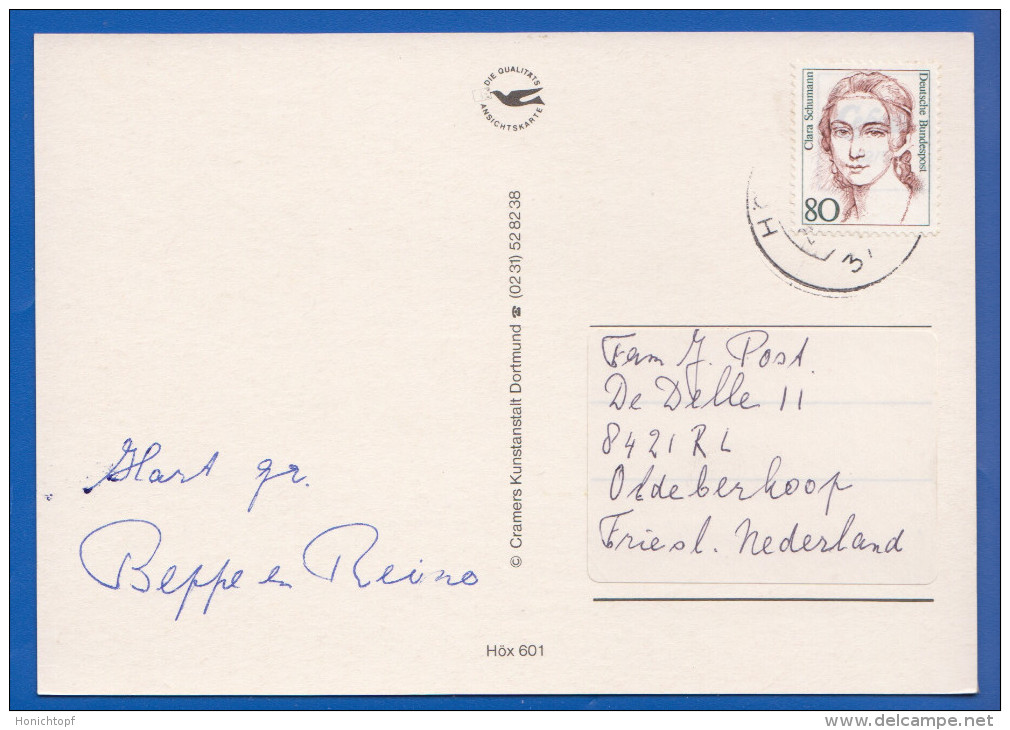 DIE QUALITÄTS
ANSICHTSKARTE
Clara Schumann
Deutsche Bundespost
80
© Cramers Kunstanstalt Dortmund ☎ (02 31) 52 82 38
Fam J. Post.
De Delle 11
8421 RL
Oldeberkoop
Friesl. Nederland
Hart gr.
Beppe en Reino
Höx 601
Honichtopf
www.delcampe.net